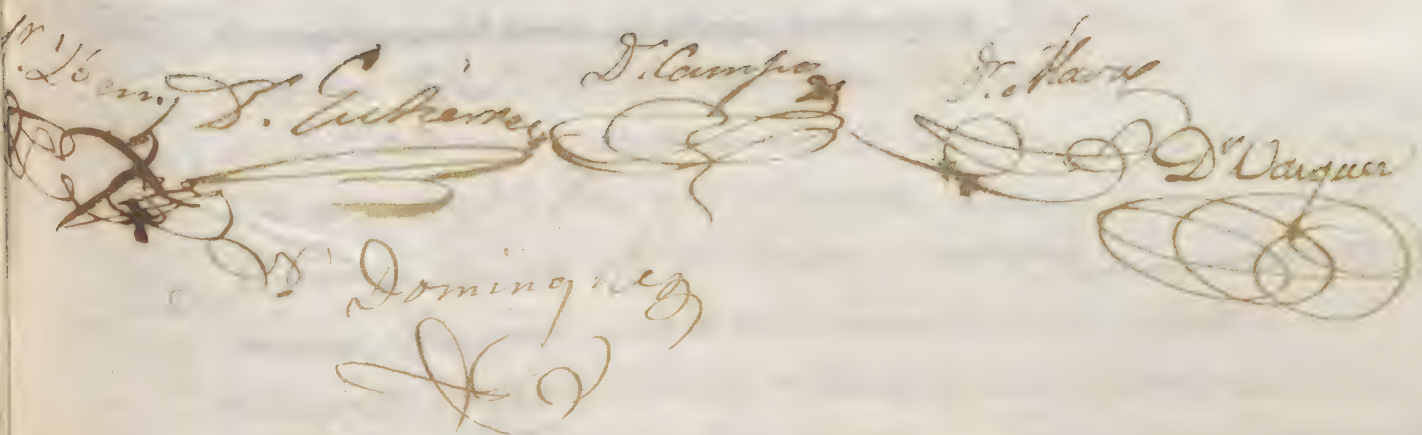 Dr. Gutierrez
Dr. Campos
Dr. Navas
Dr Varguez
Dr Dominguez